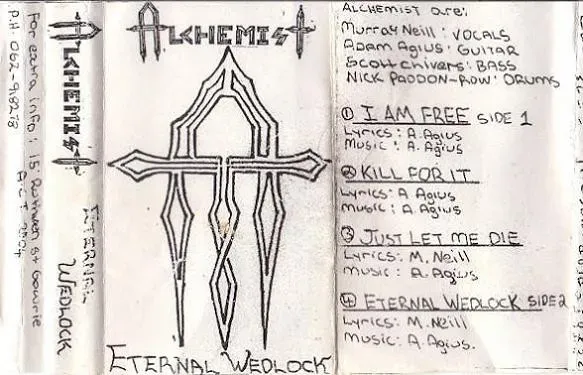 For extra info: 15 Ruthven st Gowrie
A.C.T 2904
P.H. 062-918278
ALCHEMIST
ETERNAL WEDLOCK
ALCHEMIST
ETERNAL WEDLOCK
ALCHEMIST are:
Murray Neill: VOCALS
Adam Agius: GUITAR
Scott Chivers: BASS
NICK PADDON-ROW: DRUMS
① I AM FREE SIDE 1
Lyrics: A. Agius
Music: A. Agius
② KILL FOR IT
Lyrics: A Agius
Music: A. Agius
③ JUST LET ME DIE
Lyrics: M. Neill
Music: A. Agius
④ ETERNAL WEDLOCK SIDE 2
Lyrics: M. Neill
Music: A. Agius.